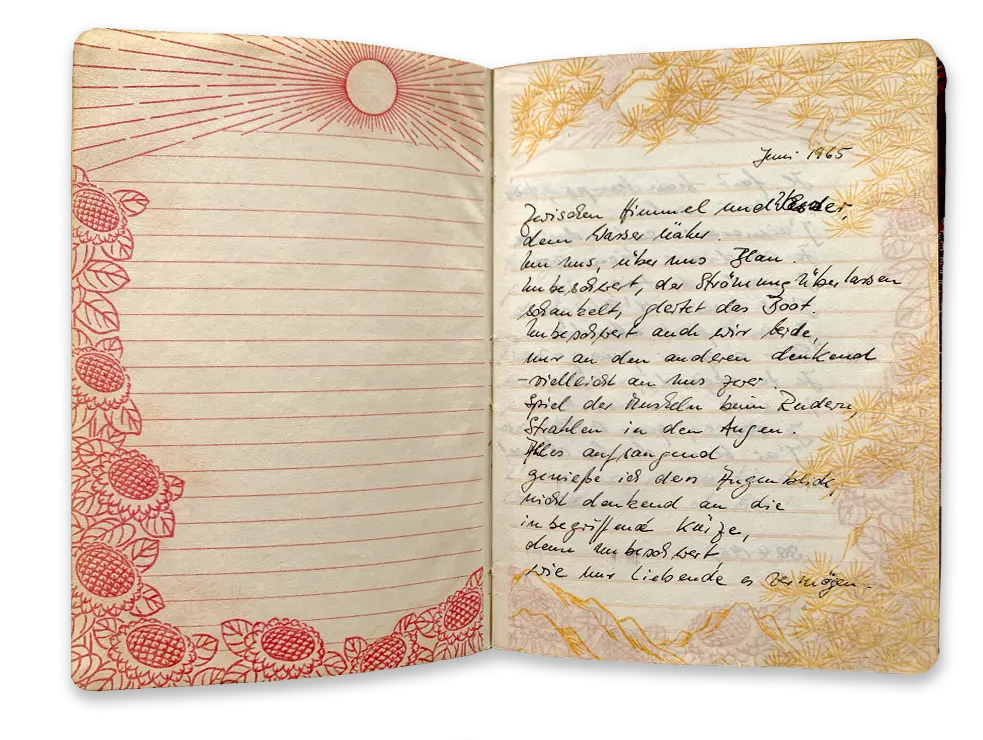 Juni 1965
Zwischen Himmel und
dem Wasser näher.
Um uns, über uns Blau.
Unbeschwert, der Strömung überlassen
schaukelt, gleitet das Boot.
Unbeschwert auch wir beide,
nur an den anderen denkend
– vielleicht an uns zwei.
Spiel der Muskeln beim Rudern,
Strahlen in den Augen.
Alles aufsaugend
genieße ich den Augenblick,
nicht denkend an die
inbegriffene Kürze,
denn unbeschwert
wie nur Liebende es vermögen.